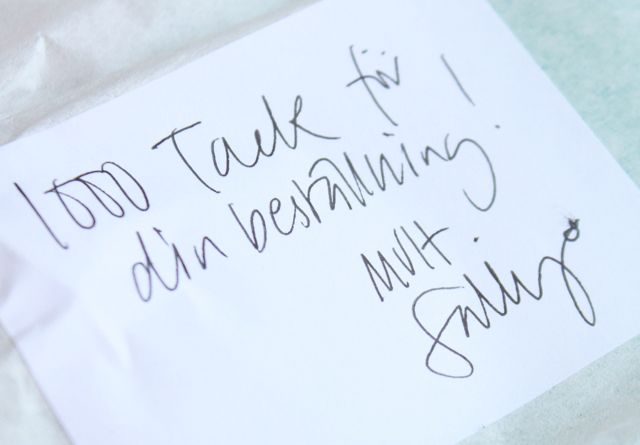 1000 Tack för
din beställning!
MVH.
Sally